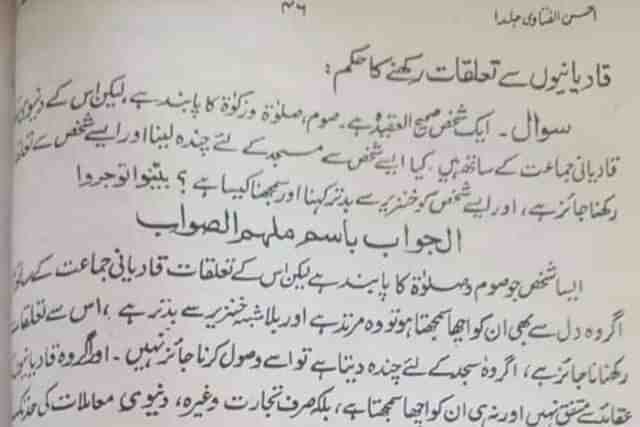 ۴۶
احسن الفتاوی جلد ۱
قادیانیوں سے تعلقات رکھنے کا حکم :
سوال ۔ ایک شخص صحیح العقیدہ ہے۔ صوم، صلوٰۃ وزکوٰۃ کا پابند ہے، لیکن اس کے دنیوی
قادیانی جماعت کے ساتھ ہیں۔ کیا ایسے شخص سے مسجد کے لئے چندہ لینا اور ایسے شخص سے
رکھنا جائز ہے، اور ایسے شخص کو خنزیر سے بدتر کہنا اور سمجھنا کیسا ہے ؟ بیّنوا توجروا
الجواب باسم ملہم الصواب
ایسا شخص جو صوم وصلوٰۃ کا پابند ہے لیکن اس کے تعلقات قادیانی جماعت کے
اگر وہ دل سے بھی ان کو اچھا سمجھتا ہو تو وہ مرتد ہے اور بلاشبہ خنزیر سے بدتر ہے ، اس سے تعلقات
رکھنا ناجائز ہے، اگر وہ مسجد کے لئے چندہ دیتا ہے تو اسے وصول کرنا جائز نہیں ۔ اور اگر وہ قادیانیوں
عقائد سے متفق نہیں اور نہ ہی ان کو اچھا سمجھتا ہے، بلکہ صرف تجارت وغیرہ، دنیوی معاملات کی حد تک